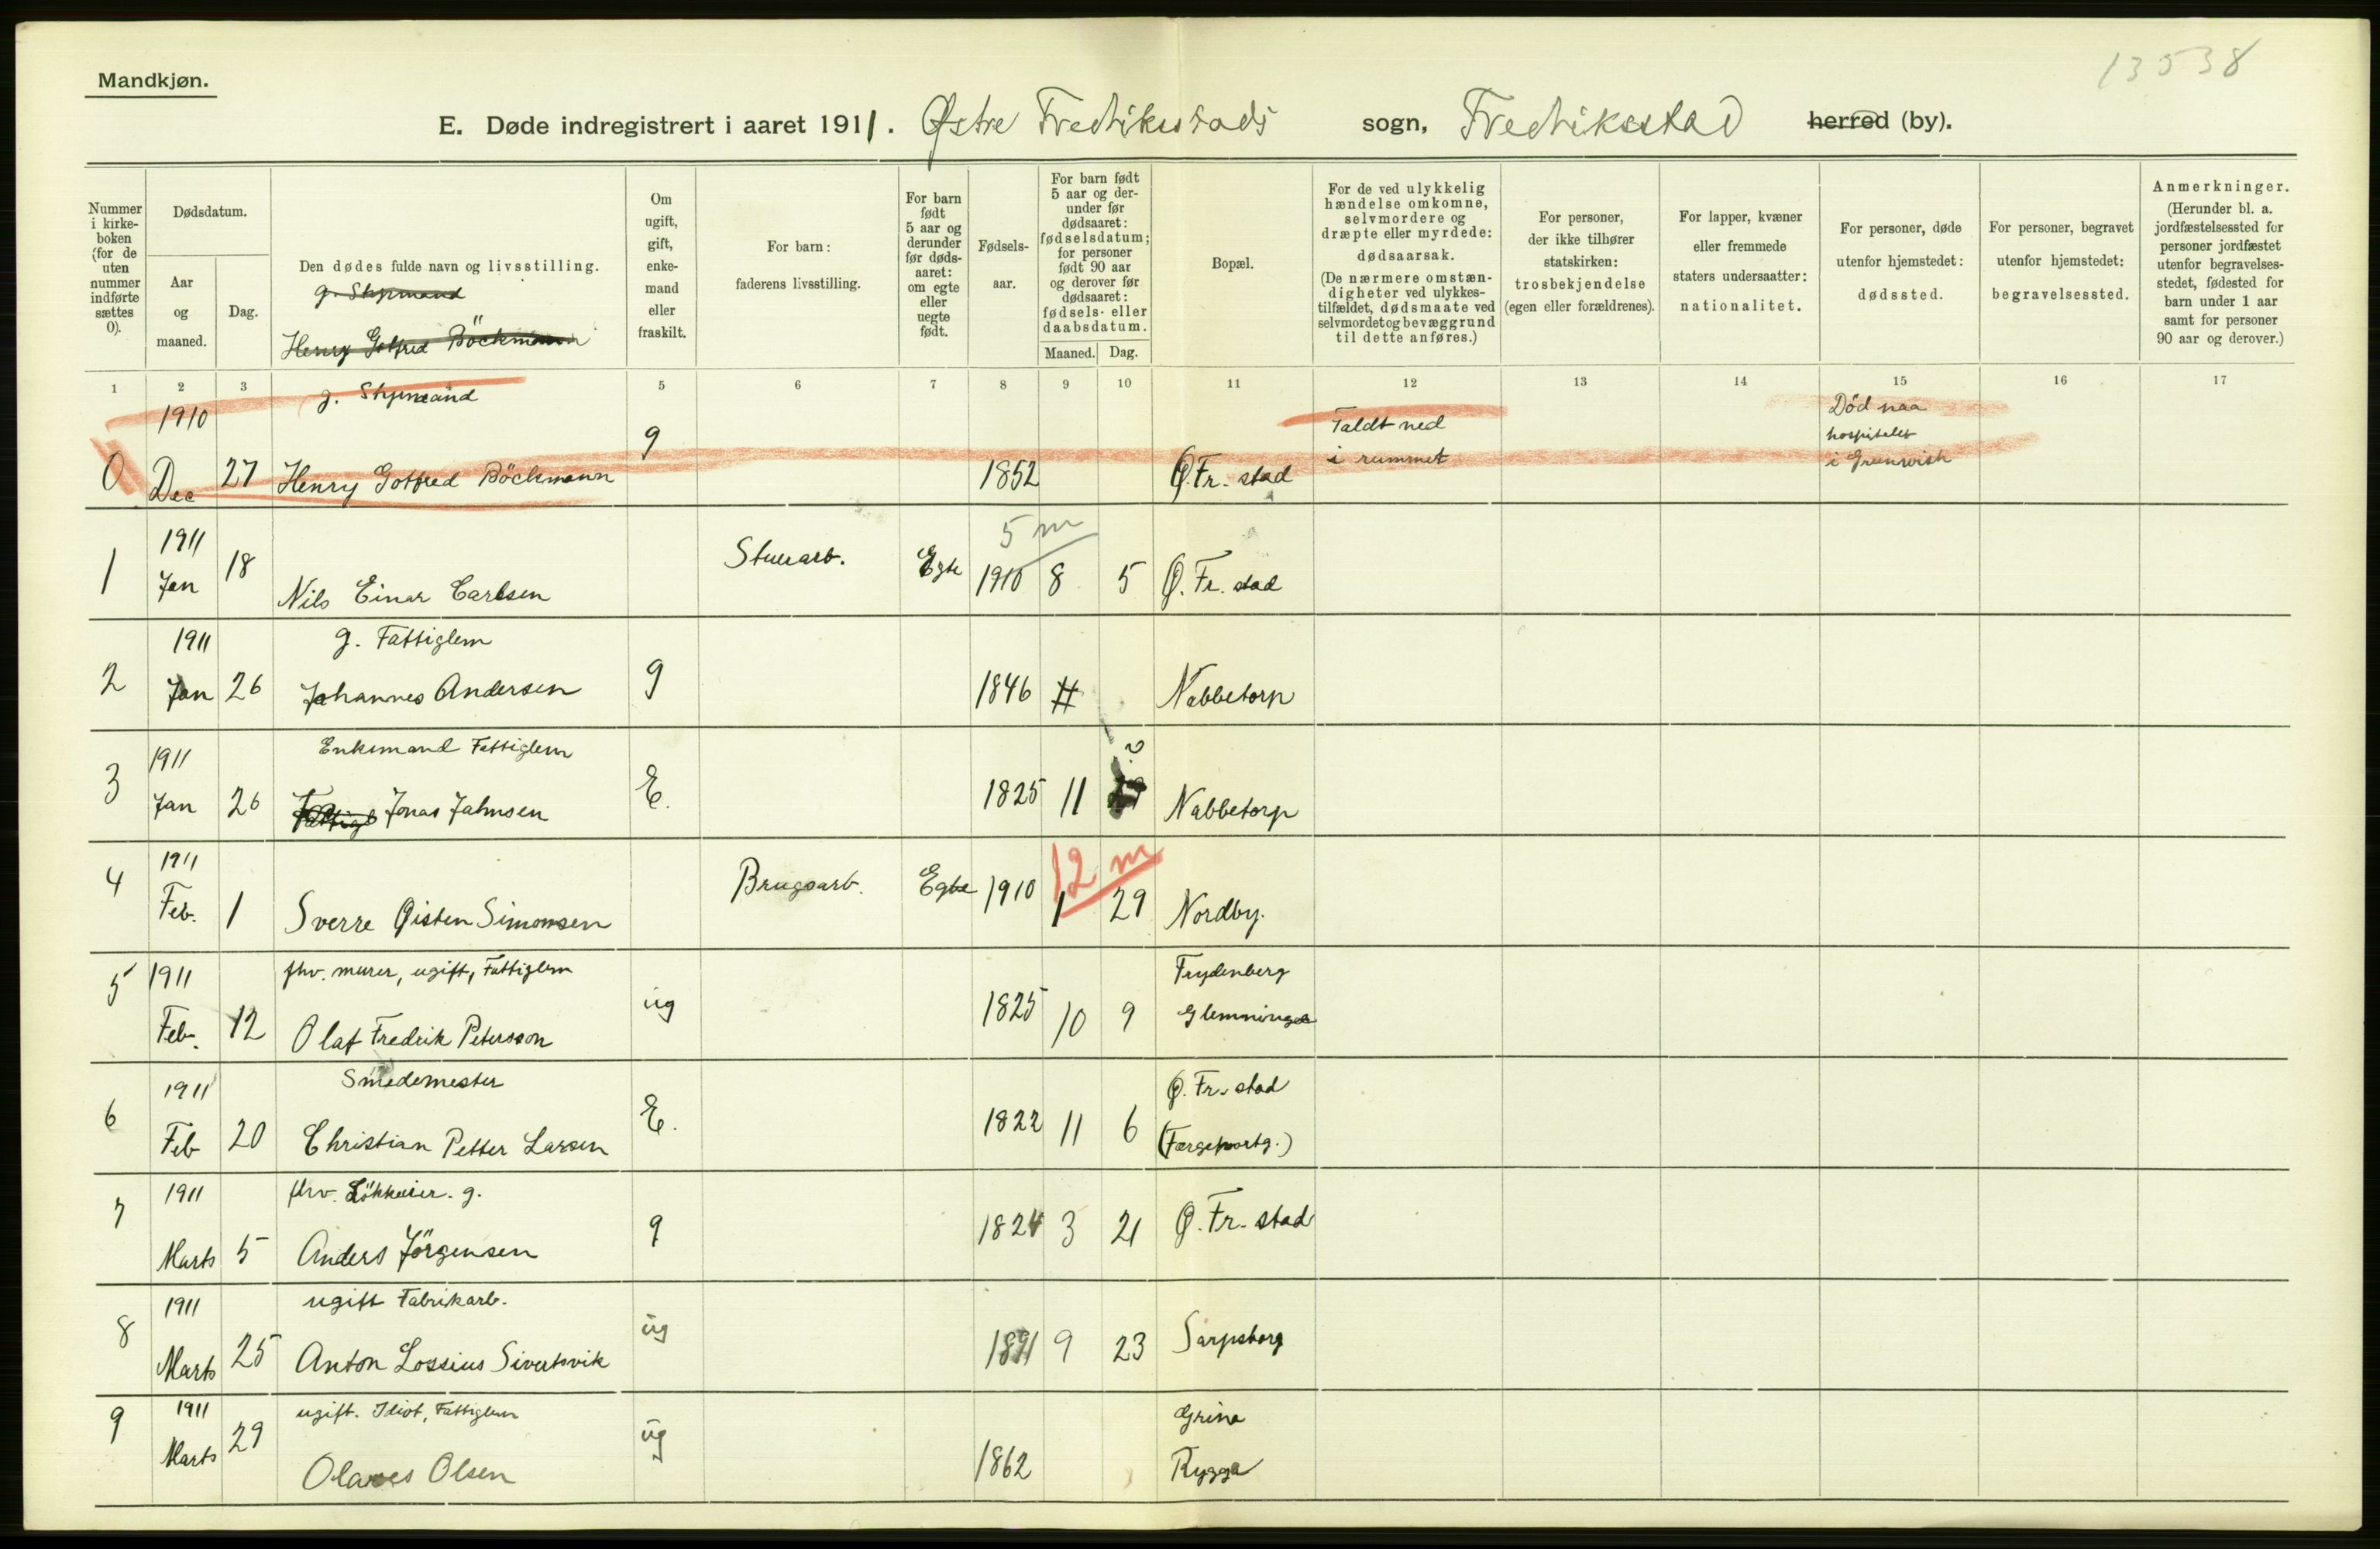 13538
Mandkjøn.
E. Døde indregistrert i aaret 1911. Østre Fredriksstads sogn, Fredriksstad herred (by).
Nummer i kirke-boken (for de uten nummer indførte sættes 0).
Dødsdatum.
Aar og maaned.
Dag.
Den dødes fulde navn og livsstilling.
g. Skipmand
Henry Gotfred Böckmann
Om ugift, gift, enke-mand eller fraskilt.
For barn: faderens livsstilling.
For barn født 5 aar og derunder før døds-aaret: om egte eller uegte født.
Fødsels-aar.
For barn født 5 aar og der-under før dødsaaret: fødselsdatum; for personer født 90 aar og derover før dødsaaret: fødsels- eller daabsdatum.
Maaned. Dag.
Bopæl.
For de ved ulykkelig hændelse omkomne, selvmordere og dræpte eller myrdede: dødsaarsak.
(De nærmere omstæn-digheter ved ulykkes-tilfældet, dødsmaate ved selvmordet og bevæggrund til dette anføres.)
For personer, der ikke tilhører statskirken: trosbekjendelse (egen eller forældrenes).
For lapper, kvæner eller fremmede staters undersaatter: nationalitet.
For personer, døde utenfor hjemstedet: dødssted.
For personer, begravet utenfor hjemstedet: begravelsessted.
Anmerkninger.
(Herunder bl. a. jordfæstelsessted for personer jordfæstet utenfor begravelses-stedet, fødested for barn under 1 aar samt for personer 90 aar og derover.)
1 2 3 4 5 6 7 8 9 10 11 12 13 14 15 16 17
1910 g. Skipmand Faldt ned Död paa
hospitalet
0 Dec 27 Henry Gotfred Böckmann g 1852 Ø. Fr. stad i rummet i Grunwish
1911 5 m
1 Jan 18 Nils Einar Carlsen Stuerarb. Egte 1910 8 5 Ø. Fr. stad
1911 g. Fattiglem
2 Jan 26 Johannes Andersen g 1846 Nabbetorp
1911 Enkemand Fattiglem
3 Jan 26 Jonas Jahnsen E. 1825 11 Nabbetorp
1911 12 m
4 Feb. 1 Sverre Øisten Simonsen Brugsarb. Egte 1910 1 29 Nordby.
1911 fhv. murer, ugift, Fattiglem Frydenberg
5 Feb. 12 Olaf Fredrik Petersson ug 1825 10 9 Glemminge
1911 Smedemester Ø. Fr. stad
6 Feb 20 Christian Petter Larsen E. 1822 11 6 (Færgeportg.)
1911 fhv. Lökkeeier. g.
7 Marts 5 Anders Jörgensen g 1824 3 21 Ø. Fr. stad
1911 ugift Fabrikarb.
8 Marts 25 Anton Lossius Sivertsvik ug 1891 9 23 Sarpsborg
1911 ugift. Idiot, Fattiglem Grina
9 Marts 29 Olaves Olsen ug 1862 Rygge